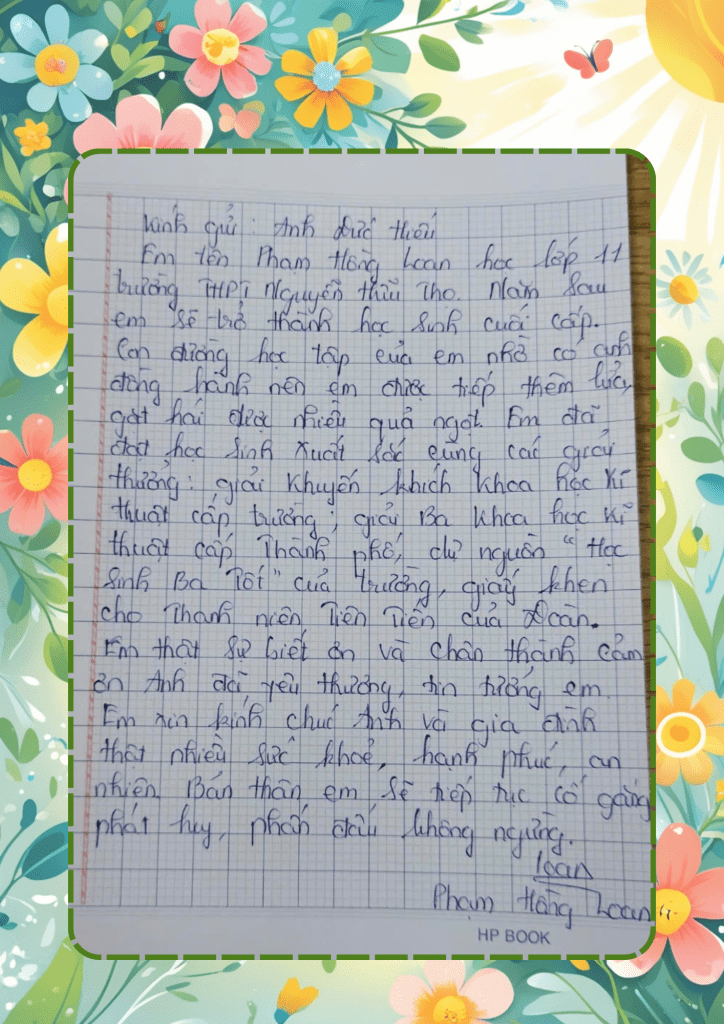 Kính gửi: Anh Đức Hiếu
Em tên Phạm Hồng Loan học lớp 11
trường THPT Nguyễn Hữu Thọ. Năm sau
em sẽ trở thành học sinh cuối cấp.
Con đường học tập của em nhờ có anh
đồng hành nên em được tiếp thêm lửa,
gặt hái được nhiều quả ngọt. Em đã
đạt học sinh xuất sắc cùng các giải
thưởng: giải Khuyến khích Khoa học Kĩ
thuật cấp trường; giải Ba Khoa học Kĩ
thuật cấp Thành phố, dự nguồn "Học
Sinh Ba Tốt" của trường, giấy khen
cho Thanh niên Tiên Tiến của Đoàn.
Em thật sự biết ơn và chân thành cảm
ơn Anh đã yêu thương, tin tưởng em.
Em xin kính chúc Anh và gia đình
thật nhiều sức khoẻ, hạnh phúc, an
nhiên. Bản thân em sẽ tiếp tục cố gắng
phát huy, phấn đấu không ngừng.
Loan
Phạm Hồng Loan
HP BOOK